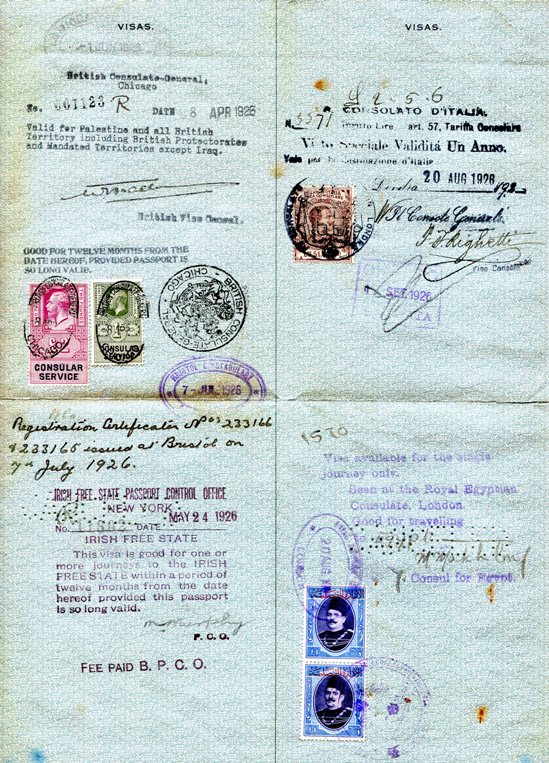 VISAS.
British Consulate-General,
Chicago
No. 001123 R DATE 8 APR 1926
Valid for Palestine and all British
Territory including British Protectorates
and Mandated Territories except Iraq.
British Vice Consul.
GOOD FOR TWELVE MONTHS FROM THE
DATE HEREOF, PROVIDED PASSPORT IS
SO LONG VALID.
CONSULAR
SERVICE
CONSULAR
BRITISH CONSULATE-GENERAL
CHICAGO
7-JUL 1926
Registration Certificates Nos 233166
& 233165 issued at Bristol on
7th July 1926.
IRISH FREE STATE PASSPORT CONTROL OFFICE
NEW YORK
No. DATE MAY 24 1926
IRISH FREE STATE
This visa is good for one or
more journeys to the IRISH
FREE STATE within a period of
twelve months from the date
hereof provided this passport
is so long valid.
P.C.O.
FEE PAID B. P. C. O.
VISAS.
CONSOLATO D'ITALIA
N. 3371 Diritto Lire art. 57, Tariffa Consolare
Visto Speciale Validitá Un Anno.
Vale per la destinazione d'Italia
Londra 20 AUG 1926 192
Il Console Generale
Vice Console
SET. 1926
1520
Visa available for the single
journey only.
Seen at the Royal Egyptian
Consulate, London.
Good for travelling
Egypt
Consul for Egypt.